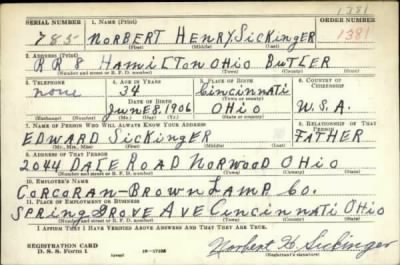 1381
SERIAL NUMBER 1. NAME (Print) ORDER NUMBER
785 NORBERT HENRY SICKINGER 1381
(First) (Middle) (Last)
2. ADDRESS (Print)
RR 8 HAMILTON OHIO BUTLER
(Number and street or R. F. D. number) (Town) (County) (State)
3. TELEPHONE 4. AGE IN YEARS 5. PLACE OF BIRTH 6. COUNTRY OF CITIZENSHIP
none 34 Cincinnati
DATE OF BIRTH (Town or county)
JUNE 8, 1906 OHIO U.S.A.
(Mo.) (Day) (Yr.) (State or country)
7. NAME OF PERSON WHO WILL ALWAYS KNOW YOUR ADDRESS 8. RELATIONSHIP OF THAT PERSON
EDWARD SICKINGER FATHER
(Mr., Mrs., Miss) (First) (Middle) (Last)
9. ADDRESS OF THAT PERSON
2044 DALE ROAD NORWOOD OHIO
(Number and street or R. F. D. number) (Town) (County) (State)
10. EMPLOYER'S NAME
CORCORAN-BROWN LAMP CO.
11. PLACE OF EMPLOYMENT OR BUSINESS
SPRING GROVE AVE CINCINNATI OHIO
(Number and street or R. F. D. number) (Town) (County) (State)
I AFFIRM THAT I HAVE VERIFIED ABOVE ANSWERS AND THAT THEY ARE TRUE.
REGISTRATION CARD
D. S. S. Form 1 Norbert H Sickinger
(Registrant's signature)